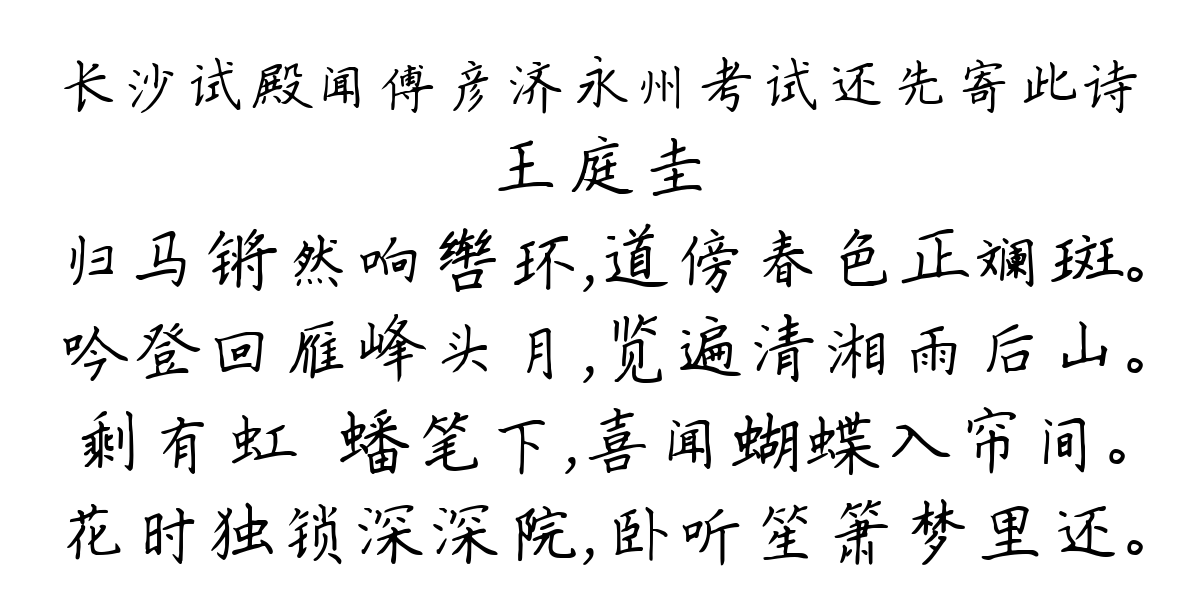 长沙试殿闻傅彦济永州考试还先寄此诗
王庭圭
归马锵然响辔环,道傍春色正斓斑。
吟登回雁峰头月,览遍清湘雨后山。
剩有虹 蟠笔下,喜闻蝴蝶入帘间。
花时独锁深深院,卧听笙箫梦里还。